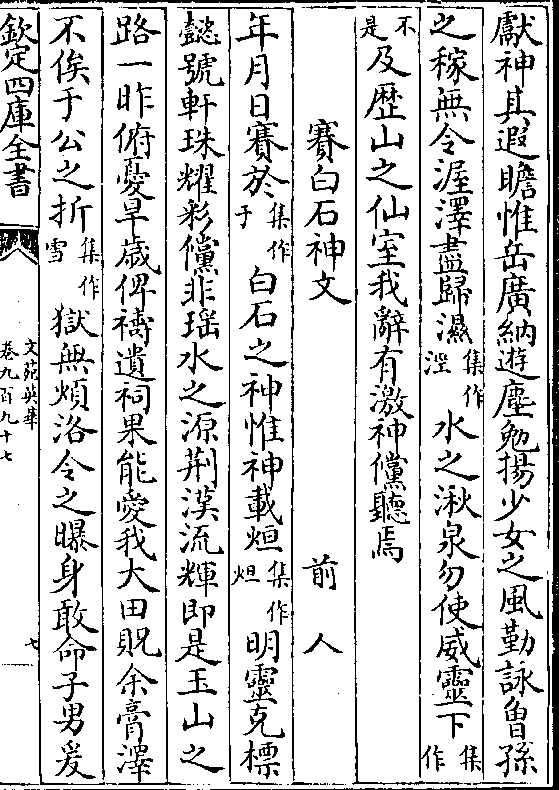 獻神其遐瞻惟岳廣納遊塵勉揚少女之風勤詠魯孫
之稼無令渥澤盡歸濕集作溼水之湫泉勿使威靈下集作
不是及歴山之仙室我辭有激神儻聽焉
賽白石神文 前人
年月日賽於集作于白石之神惟神載烜集作烜明靈克標
懿號軒珠耀彩儻非瑶水之源荆漢流輝即是玉山之
路一昨俯憂旱歲俾禱遺祠果能愛我大田貺余膏澤
不俟于公之折集作雪獄無煩洛令之曝身敢命子男爰
欽定四庫全書
文苑英華
卷九百九十七
七